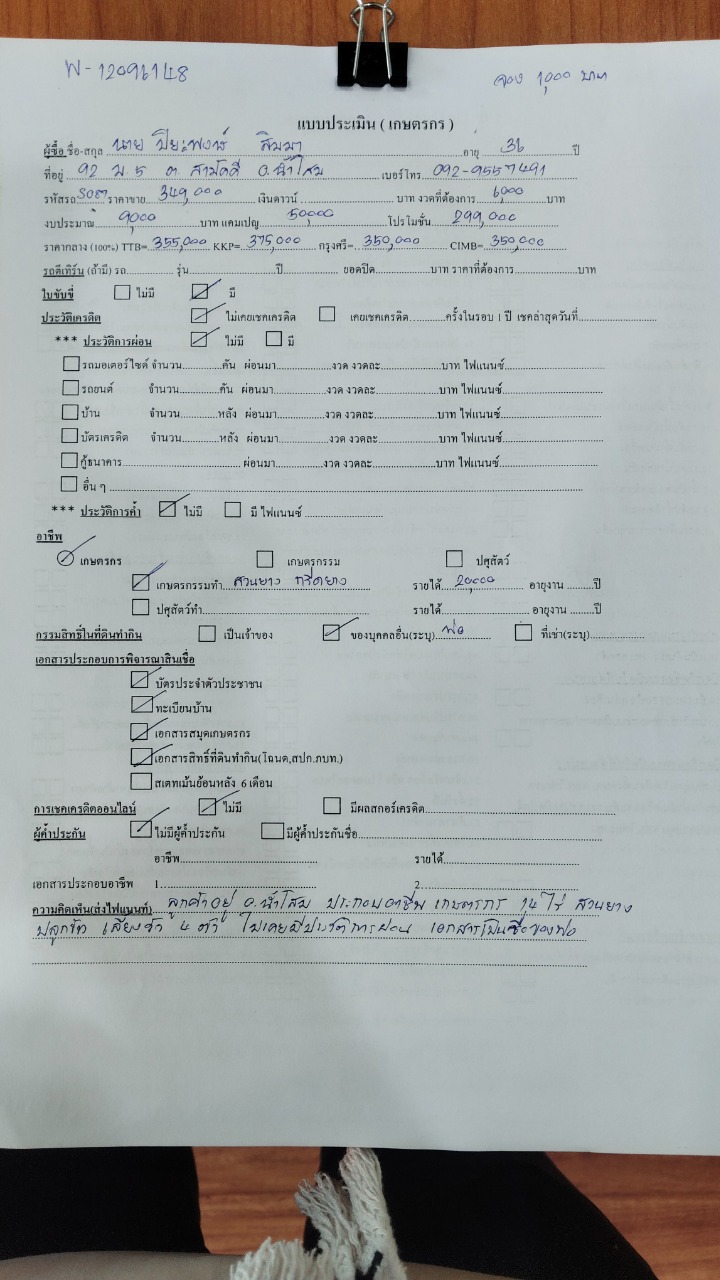 W-12096148
จอง 1,000 บาท
แบบประเมิน ( เกษตรกร )
ผู้ซื้อ ชื่อ-สกุล นาย ปิยะพงษ์ สิมมา อายุ 36 ปี
ที่อยู่ 92 ม.5 ต. สามัคคี อ.น้ำโสม เบอร์โทร. 092-9557491
รหัสรถ ราคาขาย 349,000 เงินดาวน์ บาท งวดที่ต้องการ 6,000 บาท
งบประมาณ 9,000 บาท แคมเปญ 50,000 โปรโมชั่น 299,000
ราคากลาง (100%) TTB= 355,000 KKP= 375,000 กรุงศรี= 350,000 CIMB= 350,000
รถตีเทิร์น (ถ้ามี) รถ รุ่น ปี ยอดปิด บาท ราคาที่ต้องการ บาท
ใบขับขี่ ไม่มี มี
ประวัติเครดิต ไม่เคยเชคเครดิต เคยเชคเครดิต ครั้งในรอบ 1 ปี เชคล่าสุดวันที่
*** ประวัติการผ่อน ไม่มี มี
รถมอเตอร์ไซด์ จำนวน คัน ผ่อนมา งวด งวดละ บาท ไฟแนนซ์
รถยนต์ จำนวน คัน ผ่อนมา งวด งวดละ บาท ไฟแนนซ์
บ้าน จำนวน หลัง ผ่อนมา งวด งวดละ บาท ไฟแนนซ์
บัตรเครดิต จำนวน หลัง ผ่อนมา งวด งวดละ บาท ไฟแนนซ์
กู้ธนาคาร ผ่อนมา งวด งวดละ บาท ไฟแนนซ์
อื่น ๆ
*** ประวัติการค้ำ ไม่มี มี ไฟแนนซ์
อาชีพ
เกษตรกร เกษตรกรรม ปศุสัตว์
เกษตรกรรมทำ สวนยาง กรีดยาง รายได้ 20,000 อายุงาน ปี
ปศุสัตว์ทำ รายได้ อายุงาน ปี
กรรมสิทธิ์ในที่ดินทำกิน เป็นเจ้าของ ของบุคคลอื่น(ระบุ) พ่อ ที่เช่า(ระบุ)
เอกสารประกอบการพิจารณาสินเชื่อ
บัตรประจำตัวประชาชน
ทะเบียนบ้าน
เอกสารสมุดเกษตรกร
เอกสารสิทธิ์ที่ดินทำกิน(โฉนด,สปก.ภบท.)
สเตทเม้นย้อนหลัง 6 เดือน
การเชคเครดิตออนไลน์ ไม่มี มีผลสกอร์เครดิต
ผู้ค้ำประกัน ไม่มีผู้ค้ำประกัน มีผู้ค้ำประกันชื่อ
อาชีพ รายได้
เอกสารประกอบอาชีพ 1 2
ความคิดเห็น(ส่งไฟแนนท์) ลูกค้าอยู่ อ.น้ำโสม ประกอบอาชีพ เกษตรกร 14 ไร่ สวนยาง
ปลูกข้าว เลี้ยงวัว 4 ตัว ไม่เคยมีประวัติการผ่อน เอกสารเป็นชื่อของพ่อ